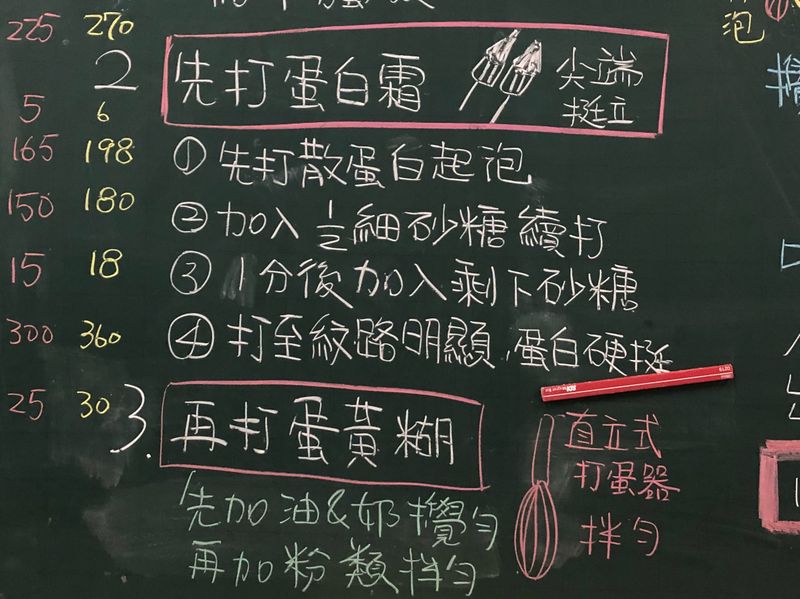 225 270
2 先打蛋白霜 尖端
挺立
5 6
165 198 ① 先打散蛋白起泡
泡
150 180 ② 加入 1/2 細砂糖續打
15 18 ③ 1分後加入剩下砂糖
300 360 ④ 打至紋路明顯,蛋白硬挺
25 30 3. 再打蛋黃糊
直立式
打蛋器
拌勻
先加油&奶攪勻
再加粉類拌勻